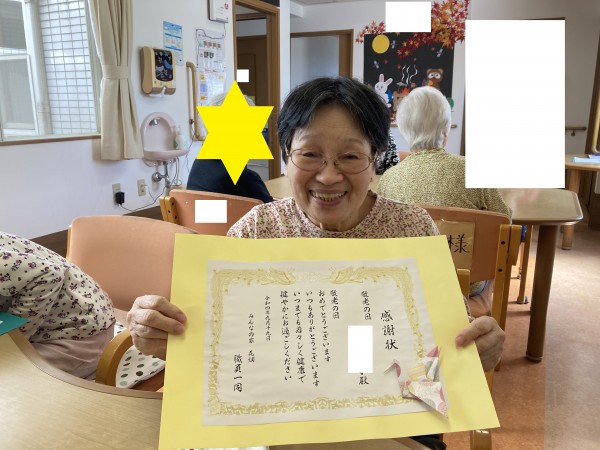 感謝状
殿
敬老の日
敬老の日
おめでとうございます
いつもありがとうございます
いつまでも若々しく健康で
健やかにお過ごしください
令和四年九月十九日
みんなの家
職員一同
様